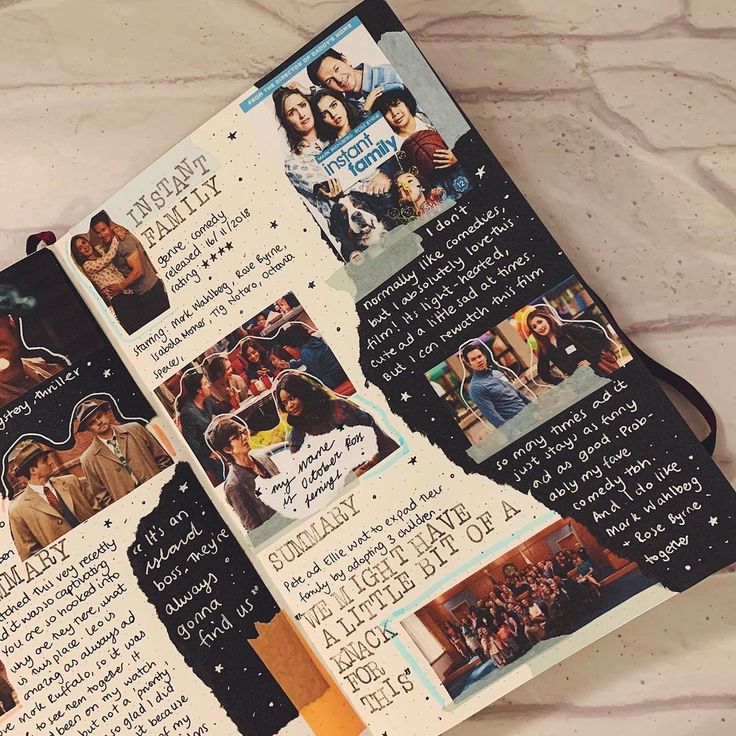 ystery thriller.
MMARY
tched this very recently
d it was so captivating
You are so hooked into
why are they here, what
is this place. Leo is
amazing as always ad
ove Mark Ruffalo, so it was
to see them together. It
been on my watch
but not a priority,
so glad I did
it because
of my
"It's an
island
boss. They're
always
gonna
find us"
INSTANT
FAMILY
genre: comedy
released: 16/11/2018
rating ★★★★
starring: Mark Wahlberg, Rose Byrne,
Isabela Moner, Tig Notaro, Octavia
Spencer,
FROM THE DIRECTOR OF DADDY'S HOME
MARK WAHLBERG ROSE BYRNE
instant
family
12
I don't
normally like comedies,
but I absolutely love this
film! Its light-hearted,
cute ad a little sad at times.
But I can rewatch this film
so many times ad it
just stays as funny
ad as good. Prob-
ably my fave
comedy tbh.
And I do like
Mark Wahlberg
+ Rose Byrne
together
"my name
is October Ross
SUMMARY
Pete ad Ellie wat to expad their
family by adopting 3 children
"WE MIGHT HAVE
A LITTLE BIT OF A
KNACK
FOR
THIS"